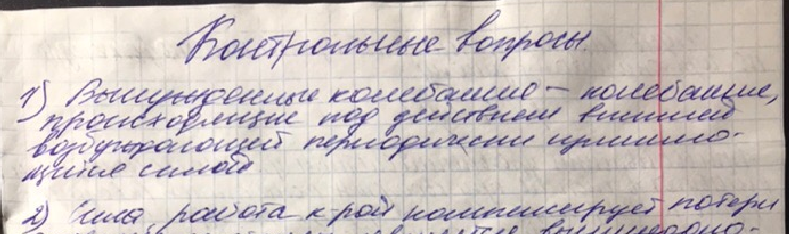 Контрольные вопросы
1) Вынужденные колебание – колебание,
происходящие под действием внешней
возбуждающей периодически
силой
2) Сила, работа к-рой компенсирует потери